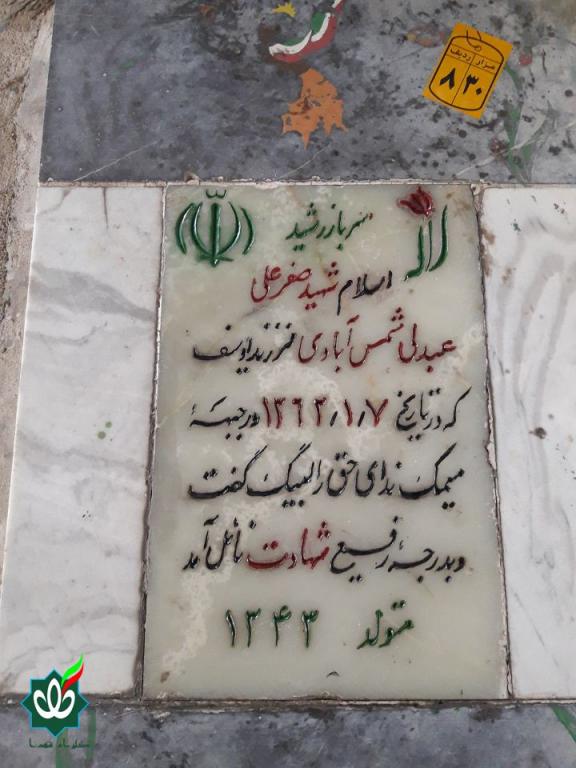 مزار ردیف
۸ ۳۰
سرباز رشید
اسلام شهید صفرعلی
عبدلی شمس آبادی فرزند یوسف
که در تاریخ ۱۳۶۲/۱/۷ در جبههٔ
میمک ندای حق را لبیک گفت
و بدرجهٔ رفیع شهادت نائل آمد
متولد ۱۳۴۳